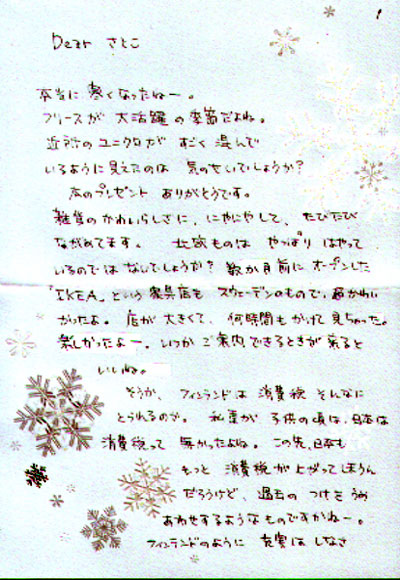 1
Dear さとこ
本当に寒くなったねー。
フリースが 大活躍の季節だよね。
近所のユニクロが すごく混んで
いるように見えたのは 気のせいでしょうか?
のプレゼント ありがとうです。
雑貨のかわいらしさに、にやにやして、たびたび
ながめてます。 北欧ものは やっぱり はやって
いるのではないでしょうか? 数か月前にオープンした
「IKEA」という家具店も スウェーデンのもので、かわい
かったよ。店が大きくて、何時間もかけて見ちゃった。
楽しかったよー。いつか ご案内できるときが来ると
いいね。
そうか、フィンランドは 消費税 そんなに
とられるのか。 私達が 子供の頃は、日本は
消費税って 無かったよね。この先、日本も
もっと 消費税が上がってしまうん
だろうけど、過去の つけを うめ
あわせするようなものですかねー。
フィンランドのように 充実は しなさ